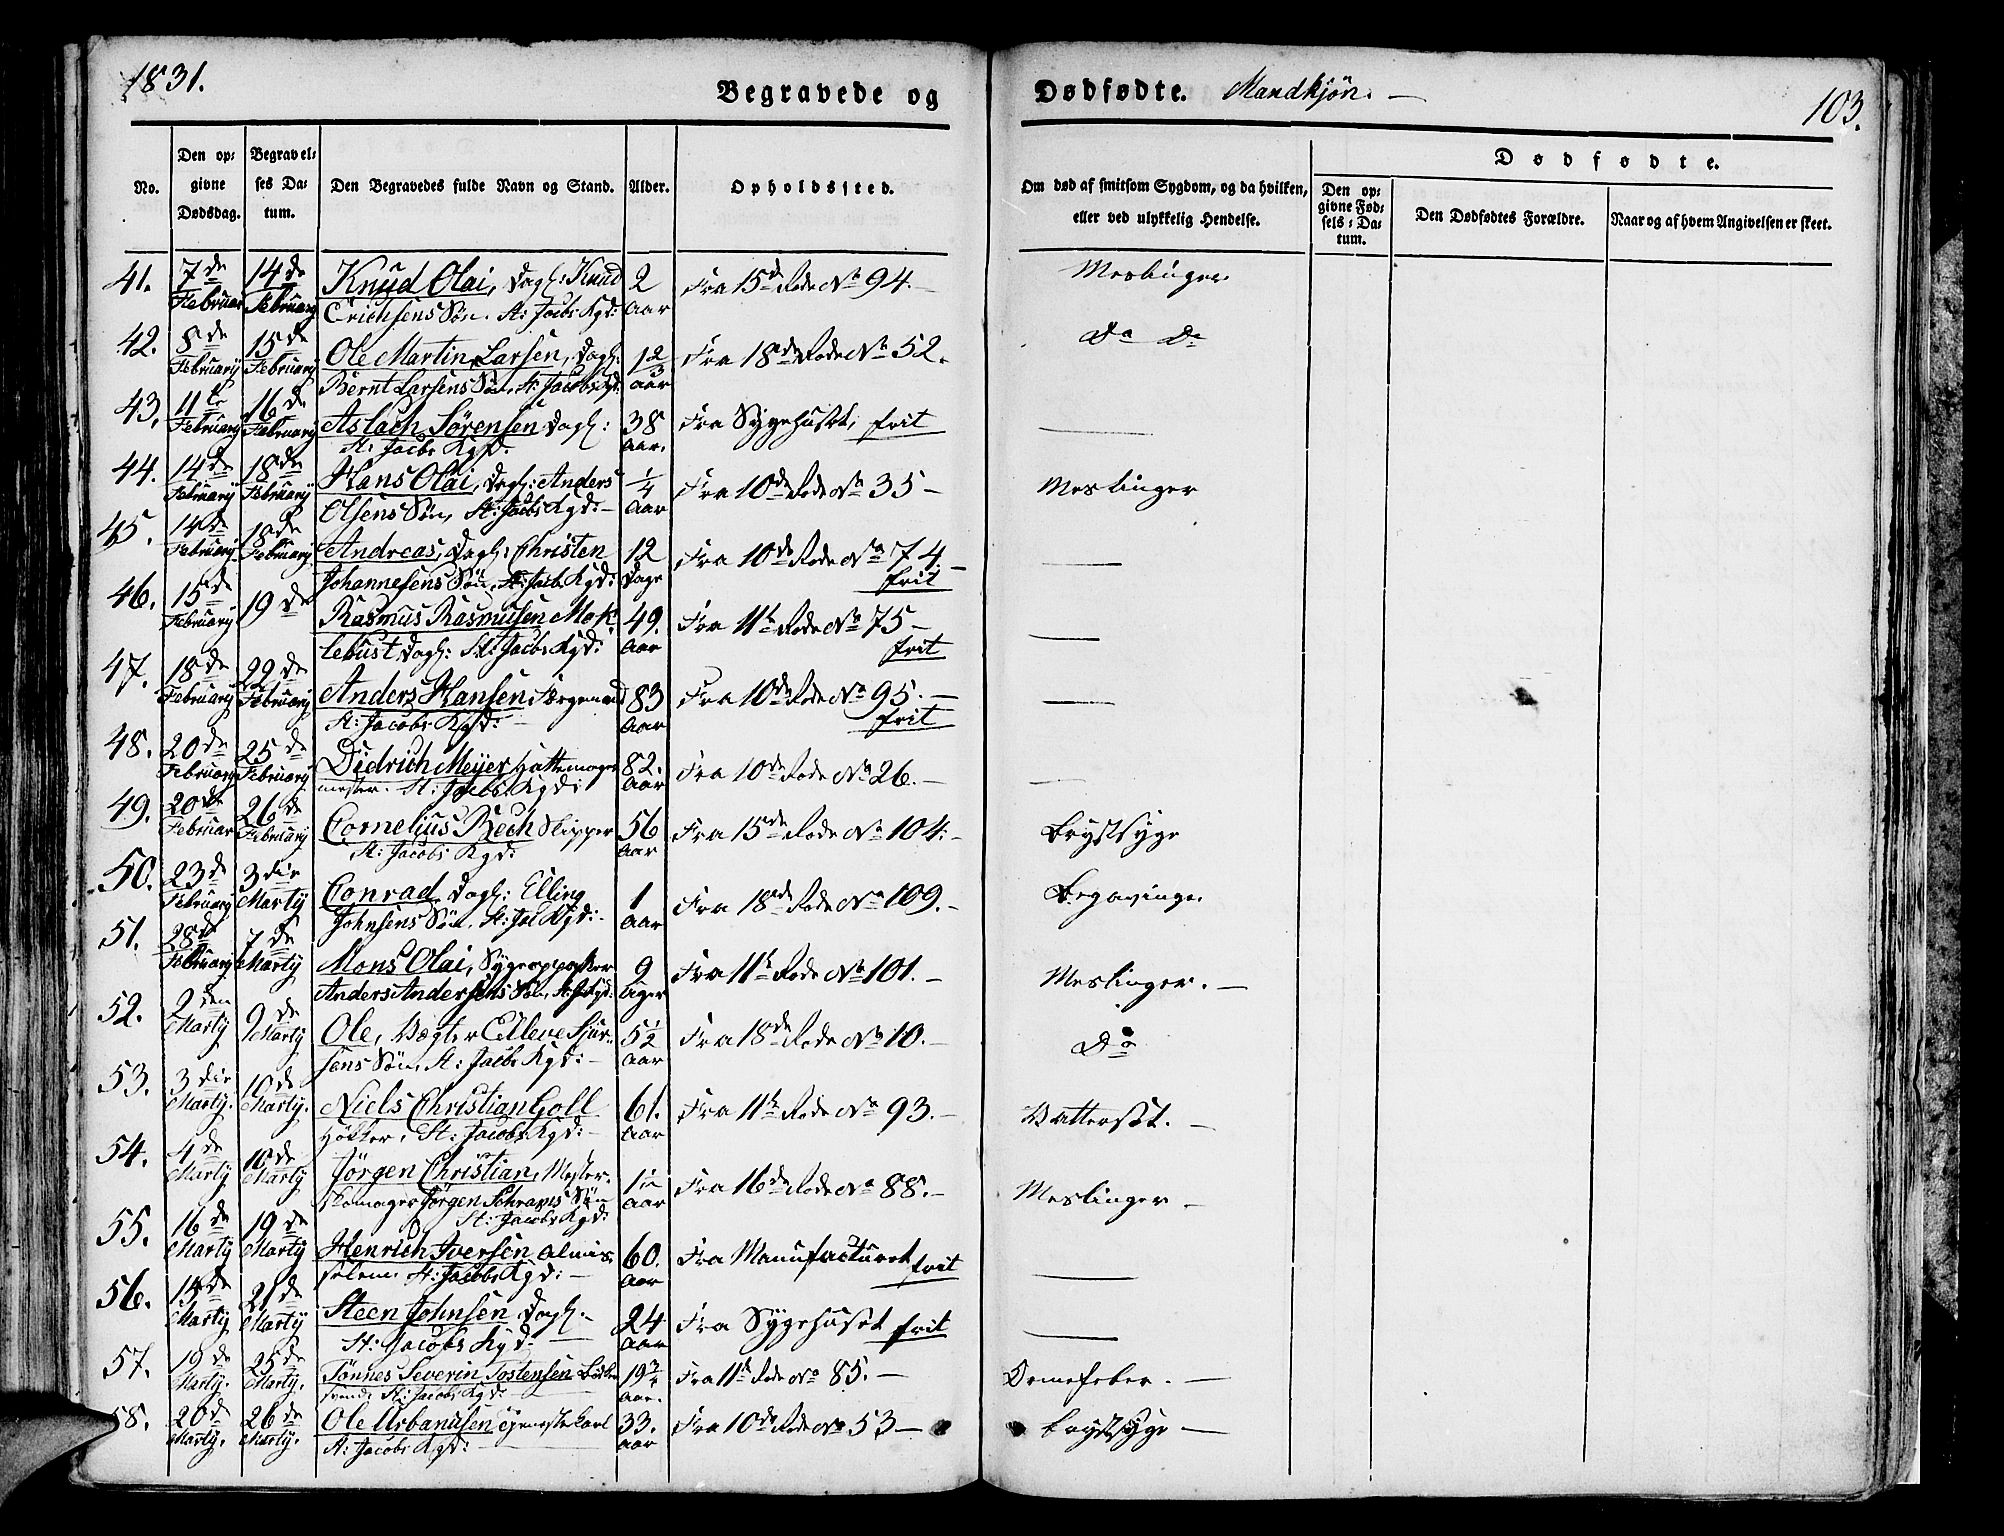 1831.
Begravede og
Dødfødte. Mandkjøn. —
103.
No.
Den opgivne Dødsdag.
Begravelses Datum.
Den Begravedes fulde Navn og Stand.
Alder.
Opholdssted.
Om død af smitsom Sygdom, og da hvilken,
eller ved ulykkelig Hendelse.
Dødfødte.
Den opgivne Fødsels-Datum.
Den Dødfødtes Forældre.
Naar og af hvem Angivelsen er skeet.
41. 7de Februar 14de Februarij Knud Olai, Dagl: Knud 2 Aar Fra 15de Rode No 94. — Meslinger
Erichsens Søn. St: Jacobs Kgd:
42. 8de Februarij 15de Februarij Ole Martin Larsen, Dagl: 1 2/3 aar Fra 18de Rode No 52. Do Do
Bernt Larsens Søn, St: Jacobs Kgd:
43. 11te Februarij 16de Februarij Aslach Sörensen Dagl: 38 Aar. Fra Sygehuset, frit —
St: Jacobs Kgd:
44. 14de Februarij 18de Februarij Hans Olai, Dagl: Anders 1/4 Aar Fra 10de Rode No 35 — Meslinger
Olsens Søn, St: Jacobs Kgd: —
45. 14de Februarij 18de Februarij Andreas, Dagl: Christen 12 Dage Fra 10de Rode No 74. — frit —
Johannesens Søn, St: Jacobs Kgd:
46. 15de Februarij 19de Rasmus Rasmusen Mok 49. Aar Fra 11te Rode No 75 — frit —
lebust Dagl: St: Jacobs Kgd:
47. 18de Februarij 22de Februarij Anders Hansen, 83 Aar Fra 10de Rode No 95. — frit —
St: Jacobs Kgd: —
48. 20de Februarij 25de Februarij Didrich Meyer Hattemager 82. Aar Fra 10de Rode No 26. — —
mester. St: Jacobs Kgd:
49. 20de Februar 26de Februarij Cornelius Bech Skipper 56 Aar Fra 15de Rode No 104. — Brystsyge
St: Jacobs Kgd:
50. 23de Februarij 3die Martij Conrad, Dagl: Elling 1 Aar Fra 18de Rode No 109. — Begavinger
Johnsens Søn, St: Jac Kgd: —
51. 28de Februarij 7de Martij Mons Olai, Sygeoppasser 9 Uger Fra 11te Rode No 101. — Meslinger. —
Anders Andersens Søn, St: J: Kgd:
52. 2den Martij 9de Martij Ole, Vægter Elleve Sjur- 5 1/2 Aar Fra 18de Rode No 10. — Do
sens Søn, St: Jacobs Kgd: —
53. 3die Martij. 10de Martij. Niels Christian Goll 61. Aar Fra 11te Rode No 93. — Vattersot. —
Høkker, St: Jacobs Kgd: —
54. 4de Martij 10de Martij Jörgen Christian, Mester- Aar Fra 16de Rode No 88. — Meslinger —
skomager Jörgen Schrams Søn
St: Jacobs Kgd:
55. 16de Martij 19de Martij Henrich Iversen Almis 60. Aar Fra Manufacturet frit —
selem St: Jacobs Kgd: —
56. 15de Martij 21de Martij Steen Johnsen Dagl. — 24 Aar Fra Sygehuset frit —
St: Jacobs Kgd: —
57. 19de Martij. 25de Martij. Tönnes Severin Tostensen 19 3/4 Aar. Fra 11te Rode No 85. — Nervefeber. —
svend, St: Jacobs Kgd:
58. 20de Martij. 26de Martij. Ole Urbanusen tjenestekarl 33. Aar Fra 10de Rode No 53 — Brystsyge —
St: Jacobs Kgd: —